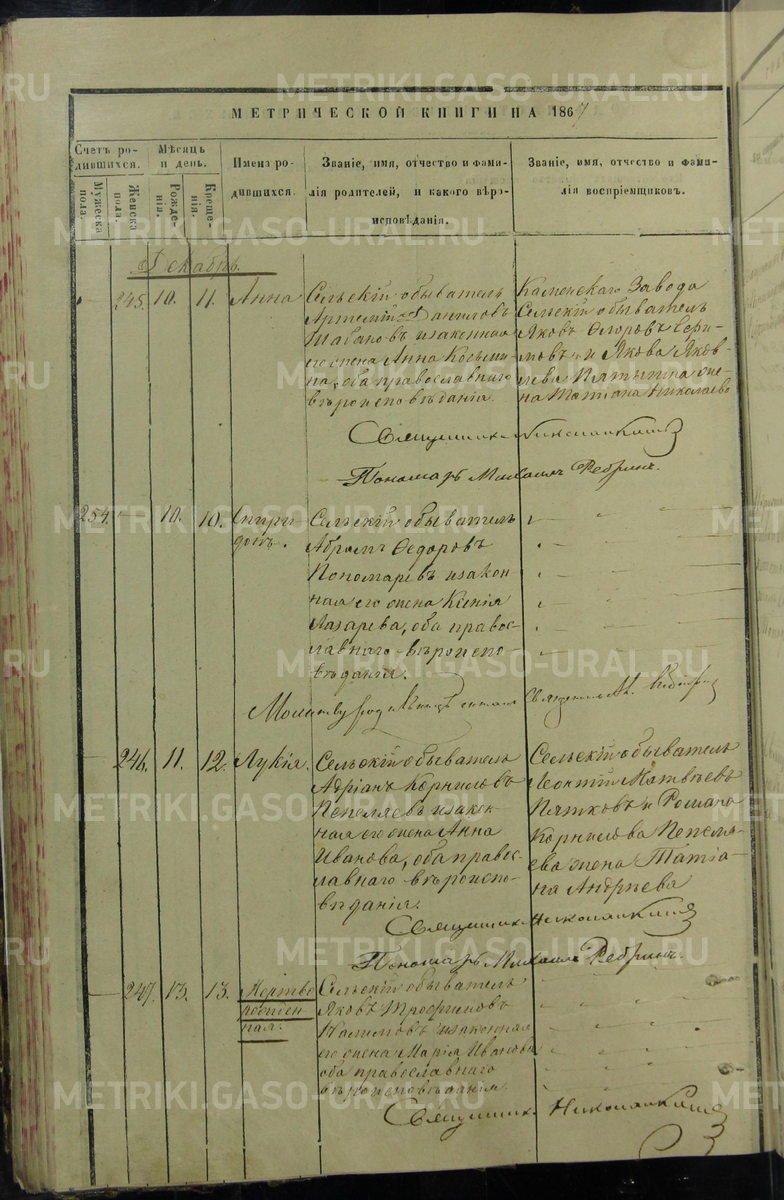 METRIKI.GASO-URAL.RU
МЕТРИЧЕСКОЙ КНИГИ НА 1867
Счетъ ро-
дившихся.
Мужеска
пола.
Женска
пола.
Мѣсяцъ
и день.
Рожде-
нія.
Креще-
нія.
Имена ро-
дившихся.
Званіе, имя, отчество и фами-
лія родителей, и какого вѣро-
исповѣданія.
Званіе, имя, отчество и фами-
лія воспріемщиковъ.
Декабрь
245. 10. 11. Анна
Сельскій обыватель
Артемій Даниловъ
Шабановъ и законная
его жена Анна Козьми-
на, оба православнаго
вѣроисповѣданія.
Каменскаго Завода
Сельскій обыватель
Яковъ Егоровъ
и Якова Яков-
лева жe-
на Татіана Николаева
Священникъ Николай
Пономарь Михаилъ Ребринъ.
254. 10. 10. Спири-
донъ.
Сельскій обыватель
Абрамъ Ѳедоровъ
Пономаревъ и закон-
ная его жена Ксенія
Лазарева, оба правос-
лавнаго вѣроиспо-
вѣданія.
Молитву Священникъ
246. 11. 12. Лукія.
Сельскій обыватель
Адріанъ Корниловъ
Пепеляевъ и закон-
ная его жена Анна
Иванова, оба правос-
лавнаго вѣроиспо-
вѣданія.
Сельскій обыватель
Леонтій Матвѣевъ
Пятковъ и Романа
Корнилова Пепеля-
ева жена Татіа-
на Андреева
Священникъ Николай
Пономарь Михаилъ Ребринъ.
247. 13. 13. Мертво
рожден-
ная.
Сельскій обыватель
Яковъ Трофимовъ
Налимовъ и законная
его жена Марія Иванова
оба православнаго
вѣроисповѣданія.
Священникъ Николай